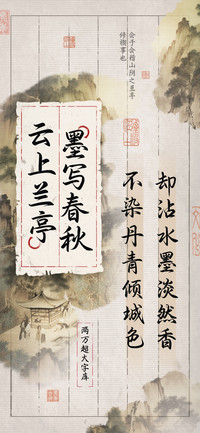 会于会稽山阴之兰亭
修禊事也
墨写春秋
云上兰亭
却沾水墨淡然香
不染丹青倾城色
两万超大字库